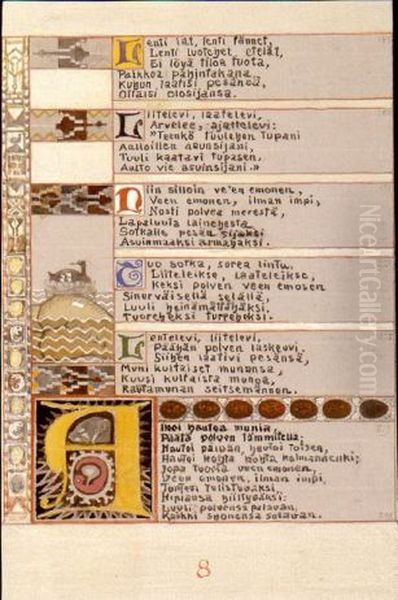 Lenti iät, lenti lännet,
Lenti luotehet, etelät,
Ei löyä tiloa tuota,
Paikkoa pahintakana,
Kuhun laatisi pesänsä,
Ottaisi olosijansa.
Liitelevi, laatelevi,
Arvelee, ajattelevi:
»Teenkö tuulehen tupani
Aalloillen asuinsijani,
Tuuli kaatavi tupasen,
Aalto vie asuinsijani.»
Niin silloin ve'en emonen,
Veen emonen, ilman impi,
Nosti polvea merestä,
Lapaluuta lainehesta
Sotkalle pesän sijaksi
Asuinmaaksi armahaksi.
Tuo sotka, sorea lintu,
Liiteleikse, laateleikse,
Keksi polven veen emosen
Sinerväisellä selällä,
Luuli heinämättähäksi,
Tuoreheksi turpeheksi.
Lentelevi, liitelevi,
Päähän polven laskeuvi.
Siihen laativi pesänsä,
Muni kultaiset munansa,
Kuusi kultaista munoa,
Rautamunan seitsemännen.
Alkoi hautoa munia,
Päätä polven lämmitellä;
Hautoi päivän, hautoi toisen,
Hautoi kohta kolmannenki;
Jopa tuosta veen emonen,
Veen emonen, ilman impi,
Tuntevi tulistuvaksi,
Hipiänsä hiiltyväksi;
Luuli polvensa palavan,
Kaikki suonensa sulavan.
8
NiceArtGallery.com